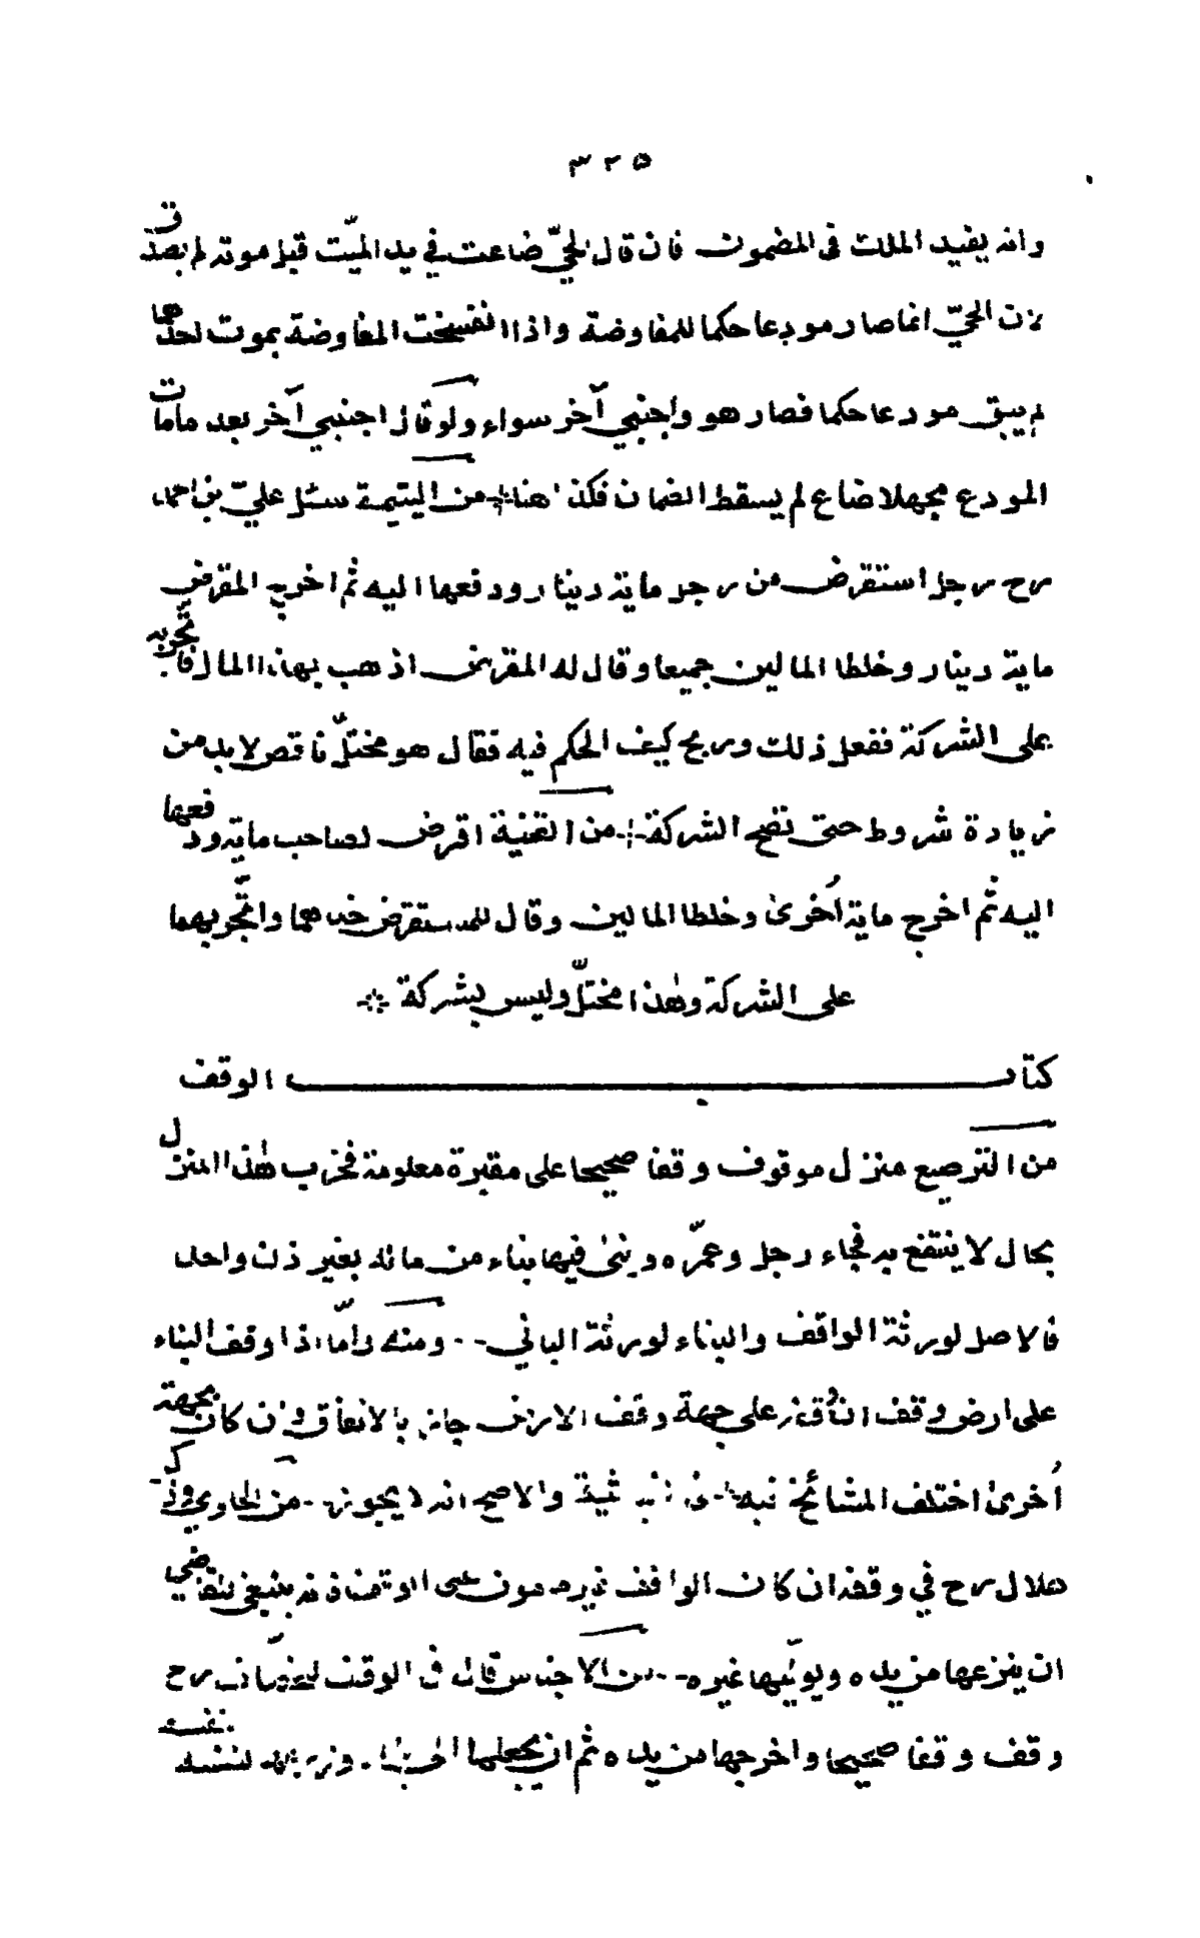 ٣٢٥
وانه يفيد الملك فى المضمون فان قال الحيّ ضاعت في يد الميّت قبل موته لم يصدق
لان الحيّ انما صار مودعا حكما للمفاوضة واذا انفسخت المفاوضة بموت احدهما
لم يبق مودعا حكما فصار هو واجنبي آخر سواء ولو قال اجنبي آخر بعد ما مات
المودع مجهلا ضاع لم يسقط الضمان فكذا هنا ÷ من اليتيمة سئل عليّ بن احمد
رح رجل استقرض من رجل ماية دينار ودفعها اليه ثم اخرج المقرض
ماية دينار وخلطا المالين جميعا وقال له المقرض اذهب بهذا المال فاتّجر به
على الشركة ففعل ذلك وربح كيف الحكم فيه فقال هو مختلّ ناقص لا بد من
زيادة شروط حتى تصح الشركة ÷ من القنية اقرض لصاحب ماية ودفعها
اليه ثم اخرج ماية اُخرىٰ وخلطا المالين وقال للمستقرض خذهما واتّجر بهما
على الشركة وهٰذا مختلّ وليس بشركة ⁘
كتاب الوقف
من الترصيع منزل موقوف وقفا صحيحا على مقبرة معلومة فخرب هٰذا المنزل
بحال لا ينتفع به فجاء رجل وعمّره وبنىٰ فيها بناء من ماله بغير اذن واحد
فالاصل لورثة الواقف والبناء لورثة الباني ÷ ومنه وامّا اذا وقف البناء
على ارض وقف ان وقف على جهة وقف الارض جاز بالاتفاق وان كان بجهة
اُخرىٰ اختلف المشائخ فيه والاصح انه لا يجوز ÷ من الحاوي وذكر
هلال رح في وقفه ان كان الواقف غير مامون على الوقف فانه ينبغي للقاضي
ان ينزعها من يده ويولّيها غيره ÷ من الاجناس قال فى الوقف للخصّاف رح
وقف وقفا صحيحا واخرجها من يده ثم ان يجعلها لنفسه